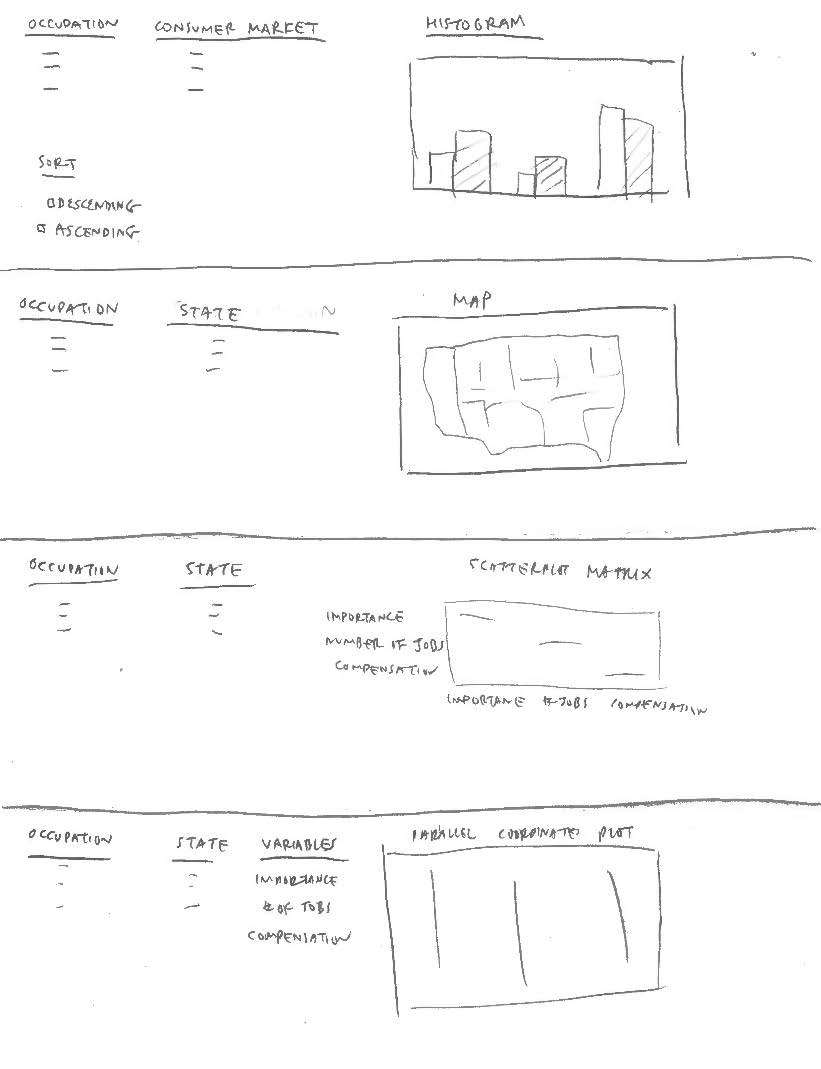 OCCUPATION CONSUMER MARKET HISTOGRAM
SORT
DESCENDING
ASCENDING
OCCUPATION STATE MAP
OCCUPATION STATE SCATTERPLOT MATRIX
IMPORTANCE
NUMBER OF JOBS
COMPENSATION
IMPORTANE # JOBS COMPENSATION
OCCUPATION STATE VARIABLES PARALLEL COORDINATES PLOT
IMPORTANCE
# OF JOBS
COMPENSATION